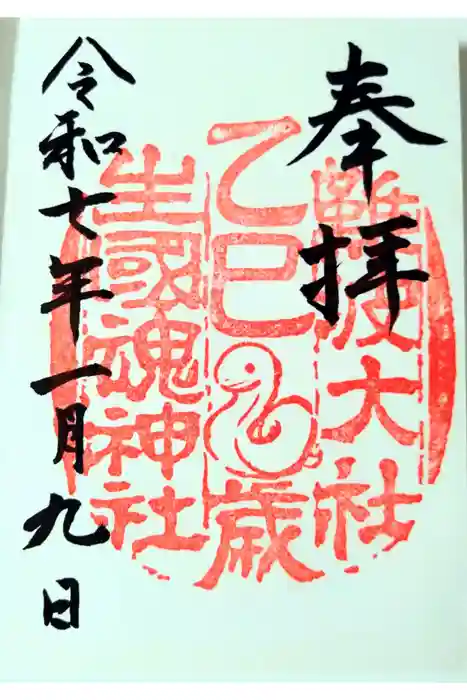 奉拝
難波大社
乙巳歳
生國魂神社
令和七年一月九日